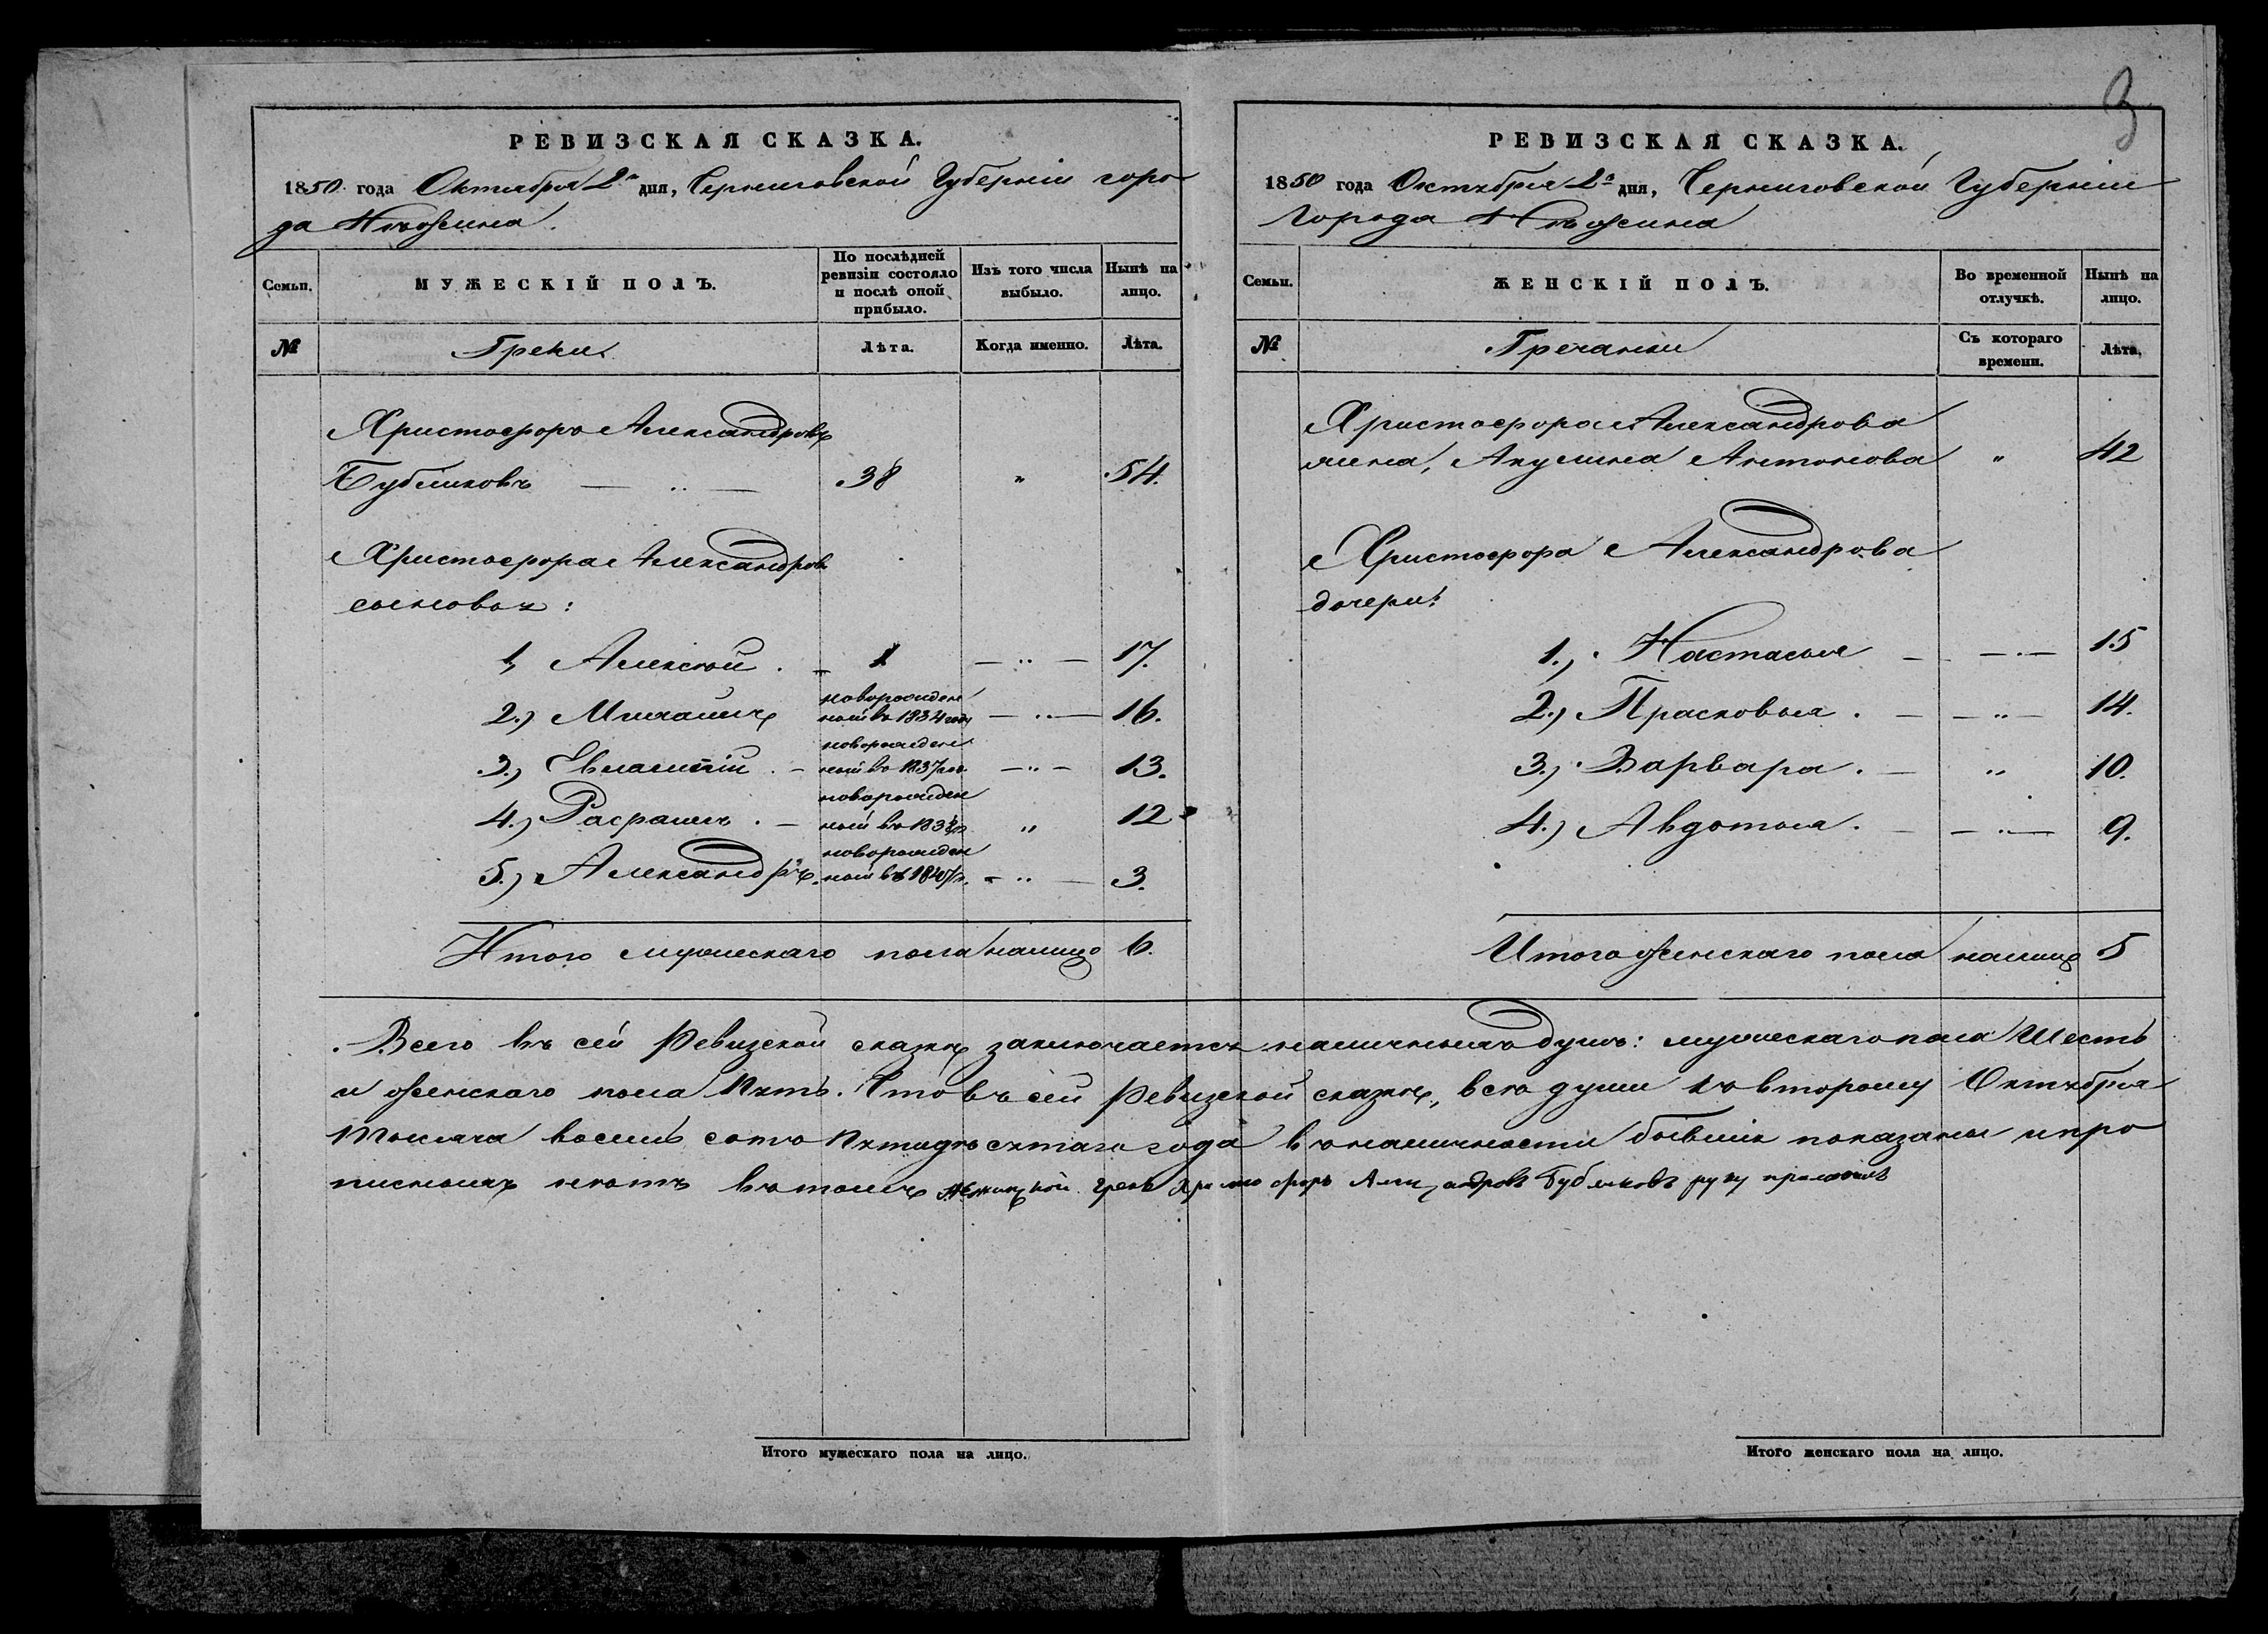 3
РЕВИЗСКАЯ СКАЗКА.
1850 года Октября 2го дня, Черниговской Губерніи горо
да Нѣжина.
Семьи. МУЖЕСКІЙ ПОЛЪ. По послѣдней ревизіи состояло и послѣ оной прибыло. Изъ того числа выбыло. Нынѣ на лицо.
№ Греки Лѣта. Когда именно. Лѣта.
Христофоръ Александровъ
Бубликовъ — „ — 38 „ 54.
Христофора Александров
сыновья:
1, Алексѣй. — 1 — „ — 17.
2.) Михаилъ новорожден
ный въ 1834 году — „ — 16.
3.) Евлампій. — новорожден
ный въ 1837 го. — „ — 13.
4.) Рафаилъ. — новорожден
ный въ 1838 г. „ 12
5.) Александръ. новорожден
ный въ 1847 г. — „ — 3.
Итого мужескаго пола налицо 6.
РЕВИЗСКАЯ СКАЗКА.
1850 года Октября 2го дня, Черниговской Губерніи
Города Нѣжина
Семьи. ЖЕНСКІЙ ПОЛЪ. Во временной отлучкѣ. Нынѣ на лицо.
№ Гречанки Съ котораго времени. Лѣта.
Христофора Александрова
жена, Акулина Антонова „ 42
Христофора Александрова
дочери:
1.) Настасья — — „ — 15
2.) Прасковья. — — „ — 14.
3.) Варвара. — „ 10.
4.) Авдотья. — — „ — 9.
Итого женскаго пола налицо 5
Всего въ сей Ревизской сказкѣ заключается наличныхъ душъ: мужескаго пола Шесть
и женскаго пола Пять. Что въ сей Ревизской сказкѣ, всѣ души ко второму Октября
Тысяча восемь сотъ Пятидесятаго года въ наличности бывшія показаны и про
писныхъ нѣтъ въ томъ Нежинской грекъ Христофоръ Александровъ Бубликовъ руку приложилъ
Итого мужескаго пола на лицо.
Итого женскаго пола на лицо.